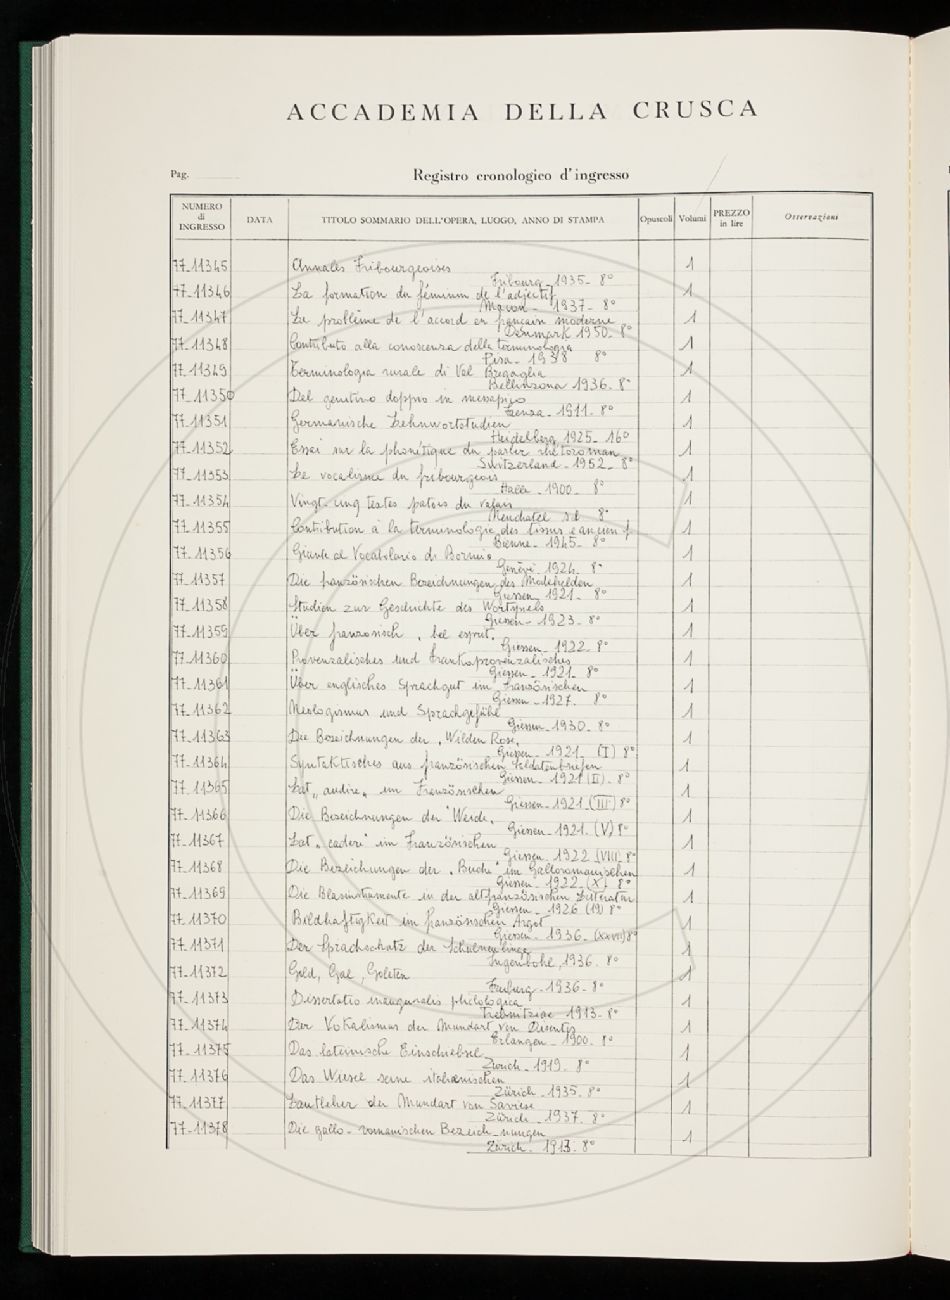 ACCADEMIA DELLA CRUSCA
Pag.
Registro cronologico d'ingresso
NUMERO di INGRESSO DATA TITOLO SOMMARIO DELL'OPERA, LUOGO, ANNO DI STAMPA Opuscoli Volumi PREZZO in lire Osservazioni
77-11345 Annales Fribourgeoises 1
Fribourg - 1935 - 8°
77-11346 La formation du féminin de l'adjectif 1
Macon - 1937 - 8°
77-11347 Le problème de l'accord en français moderne 1
Denmark 1950 - 8°
77-11348 Contributo alla conoscenza della terminologia 1
Pisa - 1938 8°
77-11349 Terminologia rurale di Val Bregaglia 1
Bellinzona 1936 - 8°
77-11350 Del genitivo doppio in messapico 1
1911 - 8°
77-11351 Germanische Lehnwortstudien 1
Heidelberg 1925 - 16°
77-11352 Essai sur la phonétique du parler rhétoroman 1
Switzerland - 1952 - 8°
77-11353 Le vocalisme du fribourgeois 1
Halle - 1900 - 8°
77-11354 Vingt-cinq textes patois du valais 1
Neuchatel s.d. 8°
77-11355 Contribution à la terminologie des tissus en ancien f. 1
Bienne - 1945 - 8°
77-11356 Giunte al Vocabolario di Bormio 1
Genève - 1924 - 8°
77-11357 Die französischen Bezeichnungen des Modehelden 1
Giessen 1921 - 8°
77-11358 Studien zur Geschichte des Wortspiels 1
Giessen - 1923 - 8°
77-11359 Über französisch "bel esprit" 1
Giessen - 1922 - 8°
77-11360 Provenzalisches und Frankoprovenzalisches 1
Giessen - 1921 - 8°
77-11361 Über englisches Sprachgut im Französischen 1
Giessen - 1927 - 8°
77-11362 Neologismus und Sprachgefühl 1
Giessen - 1930 - 8°
77-11363 Die Bezeichnungen der "Wilden Rose" 1
Giessen - 1921 - (I) 8°
77-11364 Syntaktisches aus französischen Soldatenbriefen 1
Giessen - 1921 (II) - 8°
77-11365 Lat "audire" im Französischen 1
Giessen - 1921 (III) 8°
77-11366 Die Bezeichnungen der "Weide" 1
Giessen - 1921 - (V) 8°
77-11367 Lat "cadere" im Französischen 1
Giessen - 1922 (VIII) 8°
77-11368 Die Bezeichungen der "Buche" im Galloromanischen 1
Giessen - 1922 - (X) 8°
77-11369 Die Blasinstrumente in der altfranzösischen Literatur 1
Giessen - 1926 (19) 8°
77-11370 Bildhaftigkeit im französischen Argot 1
Giessen - 1936 - (XXVII) 8°
77-11371 Der Sprachschatz der 1
Ingenbohl, 1936 - 8°
77-11372 Gold, Gral, Goleten 1
Freiburg - 1936 - 8°
77-11373 Dissertatio inauguralis philologica 1
Trebnitziae 1913 - 8°
77-11374 Der Vokalismus der Mundart von Disentis 1
Erlangen - 1900 - 8°
77-11375 Das lateinische Einschiebsel 1
Zürich - 1919 - 8°
77-11376 Das Wiesel seine italienischen 1
Zürich - 1935 - 8°
77-11377 Lautlehre der Mundart von Savièse 1
Zürich - 1937 - 8°
77-11378 Die gallo-romanischen Bezeichnungen 1
Zürich - 1913 - 8°